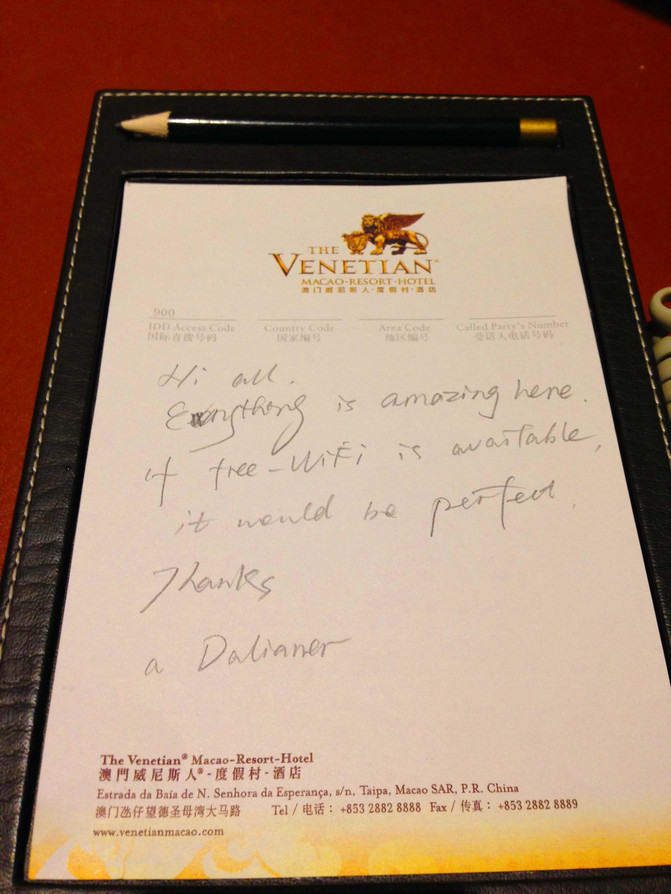 THE
VENETIAN®
MACAO-RESORT-HOTEL
澳门威尼斯人·度假村·酒店
900
IDD Access Code Country Code Area Code Called Party's Number
国际直拨号码 国家编号 地区编号 受话人电话号码
Hi all.
Everything is amazing here.
If free-WiFi is available,
it would be perfect.
Thanks
a Dalianer
The Venetian® Macao-Resort-Hotel
澳門威尼斯人®-度假村-酒店
Estrada da Baía de N. Senhora da Esperança, s/n, Taipa, Macao SAR, P.R. China
澳门氹仔望德圣母湾大马路 Tel / 电话： +853 2882 8888 Fax / 传真： +853 2882 8889
www.venetianmacao.com